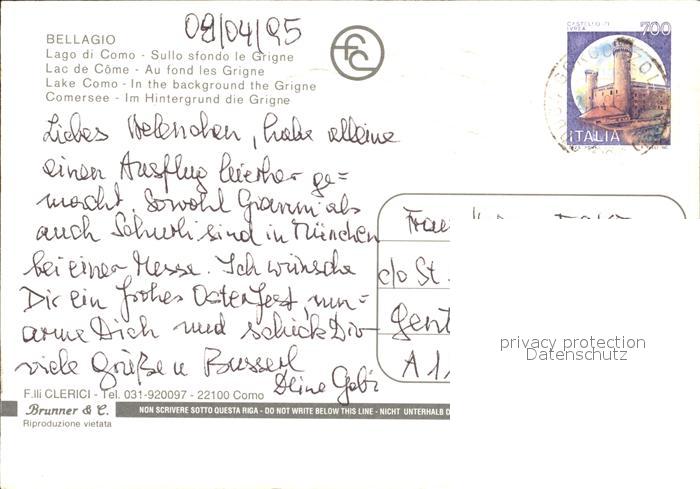 09/04/95
BELLAGIO
Lago di Como - Sullo sfondo le Grigne
Lac de Côme - Au fond les Grigne
Lake Como - In the background the Grigne
Comersee - Im Hintergrund die Grigne
CASTELLO DI
IVREA
700
ITALIA
Liebes Helenchen, habe alleine
einen Ausflug hierher ge=
macht. Sowohl Gianni als
auch Schurli sind in München
bei einer Messe. Ich wünsche
Dir ein frohes Osterfest, um=
arme Dich und schick Dir
viele Grüße u Busserl
Deine Gabi
Frau
c/o St.
Gent
A 1
privacy protection
Datenschutz
F.lli CLERICI - Tel. 031-920097 - 22100 Como
Brunner & C.
NON SCRIVERE SOTTO QUESTA RIGA - DO NOT WRITE BELOW THIS LINE - NICHT UNTERHALB D
Riproduzione vietata